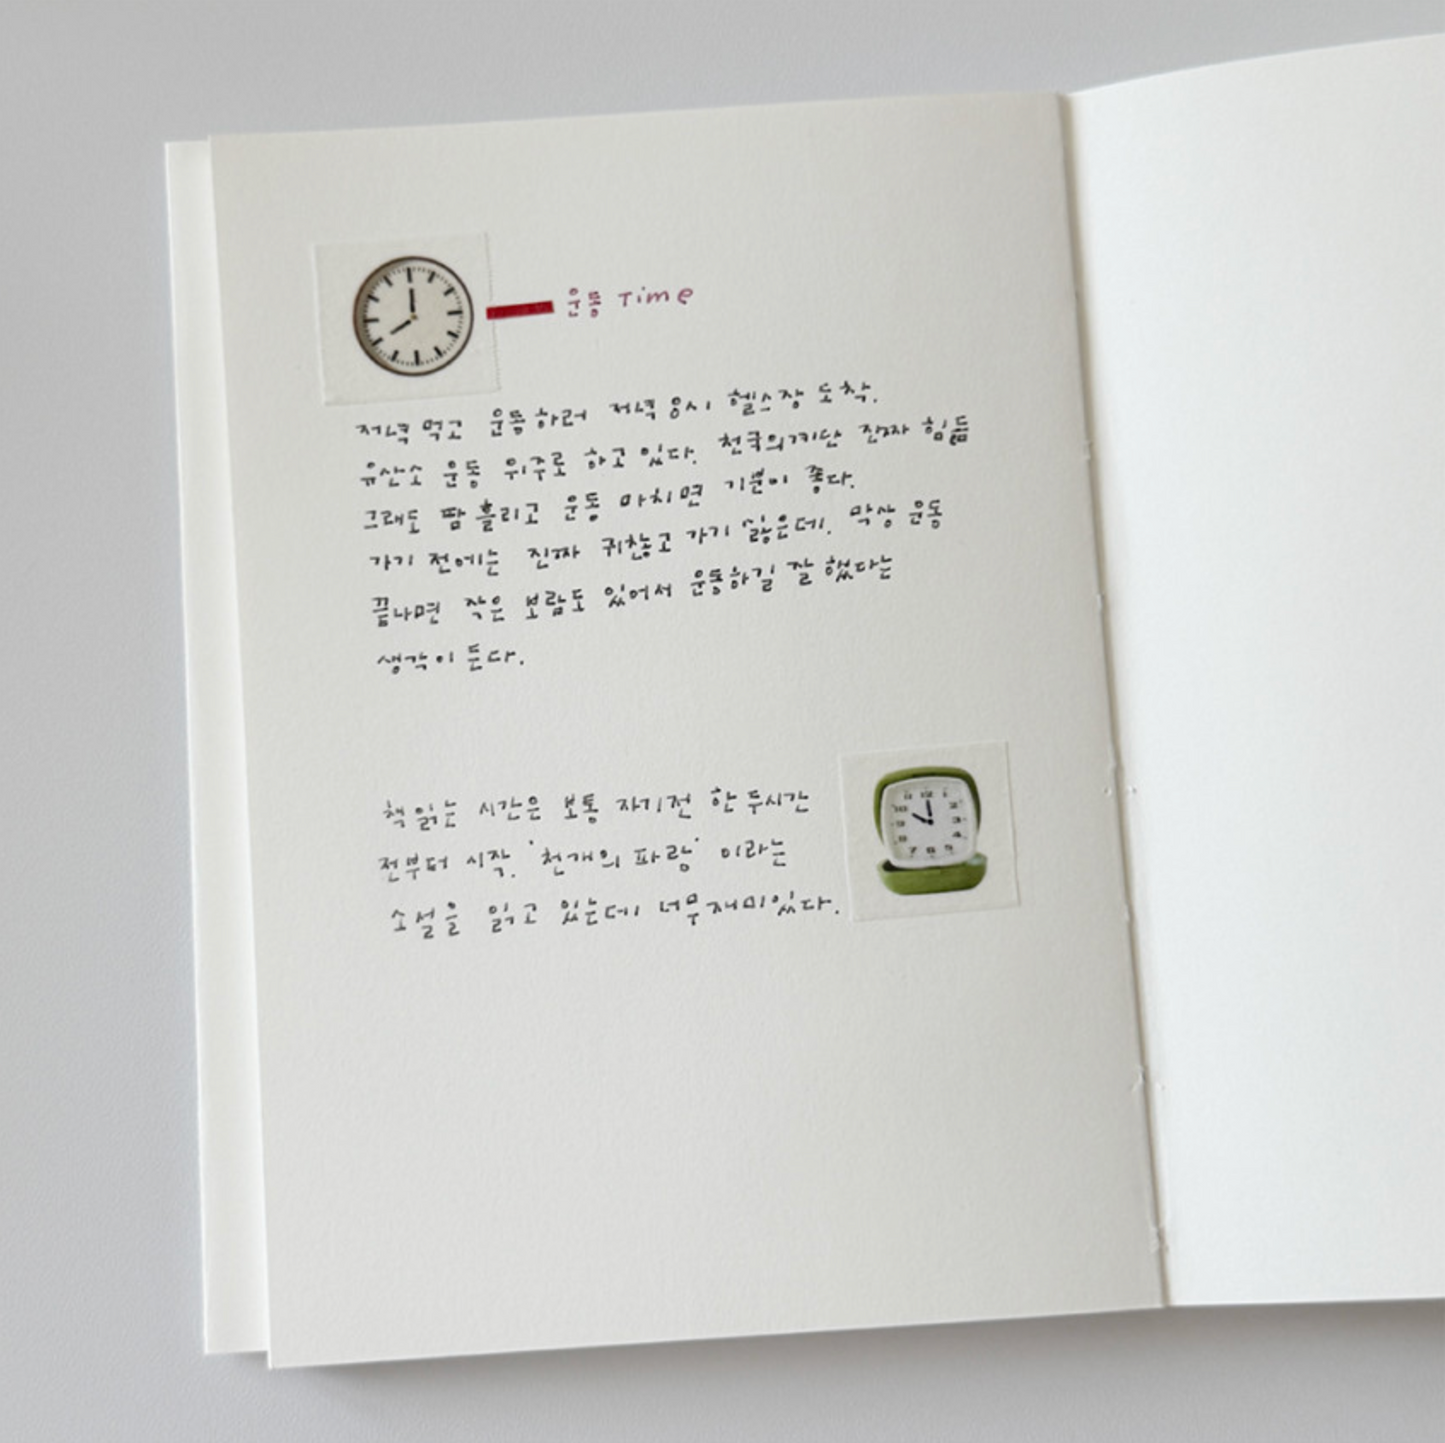 운동 Time
저녁 먹고 운동하러 저녁 8시 헬스장 도착.
유산소 운동 위주로 하고 있다. 천국의계단 진짜 힘듦
그래도 땀 흘리고 운동 마치면 기분이 좋다.
가기 전에는 진짜 귀찮고 가기 싫은데. 막상 운동
끝나면 작은 보람도 있어서 운동하길 잘 했다는
생각이 든다.
책 읽는 시간은 보통 자기전 한 두시간
전부터 시작. '천개의 파랑' 이라는
소설을 읽고 있는데 너무 재미있다.